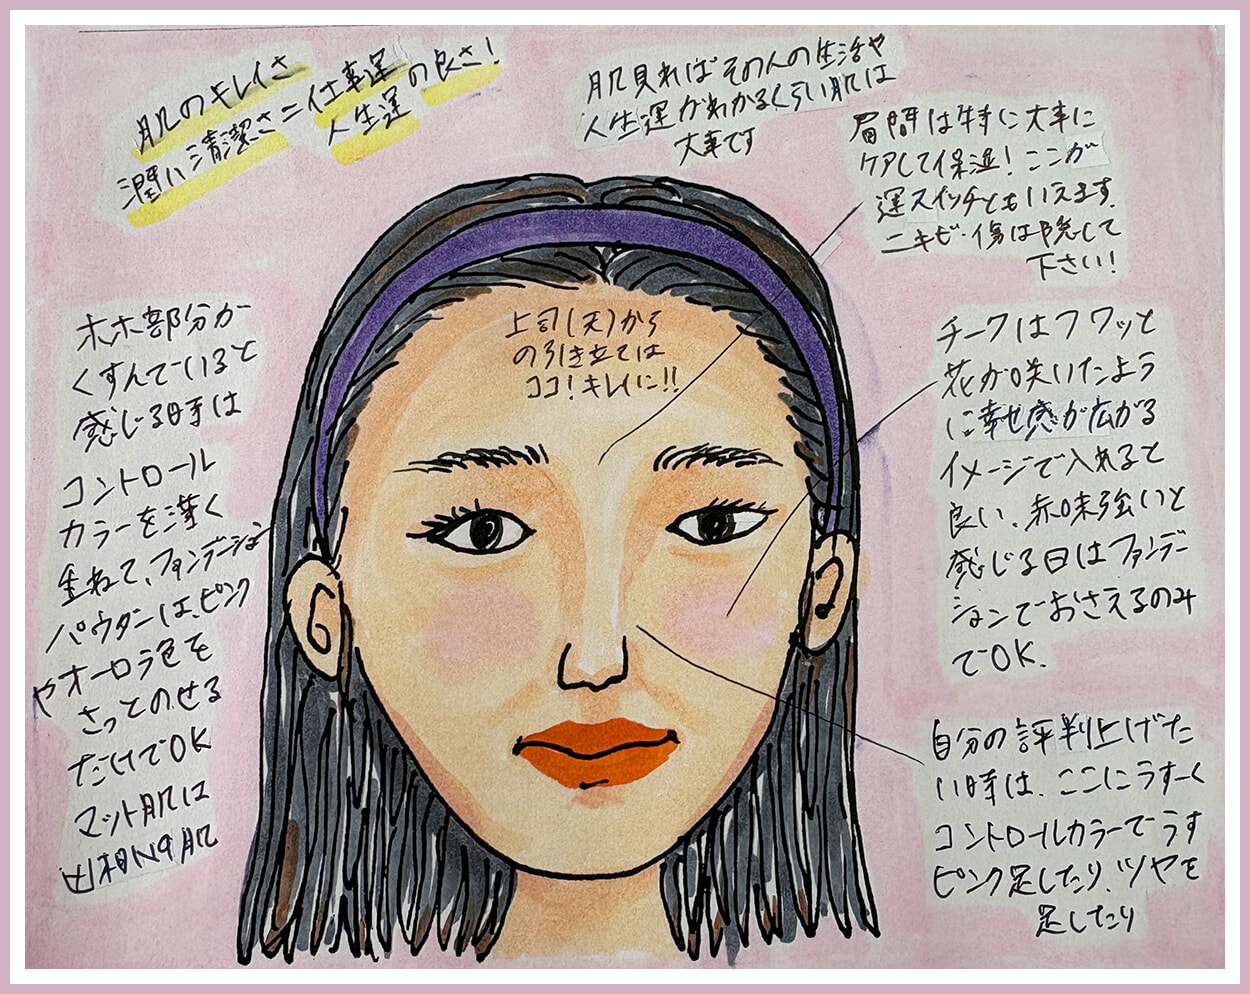 肌のキレイさ
潤い清潔さ=仕事運
人生運の良さ!
肌見ればその人の生活や
人生運がわかるくらい肌は
大事です
眉間は特に大事に
ケアして保湿!ここが
運スイッチともいえます。
ニキビ・傷は隠して
下さい!
上司(天)から
の引き立ては
ココ!キレイに!!
ホホ部分が
くすんでいると
感じる時は
コントロール
カラーを薄く
重ねて、ファンデーションは
パウダーは、ピンク
やオーロラ色を
さっとのせる
だけでOK
マット肌は
凶相NG肌
チークはフワッと
花が咲いたよう
に幸せ感が広がる
イメージで入れると
良い、赤味強いと
感じる日はファンデー
ションでおさえるのみ
でOK.
自分の評判上げた
い時は、ここにうすーく
コントロールカラーでうす
ピンク足したり、ツヤを
足したり